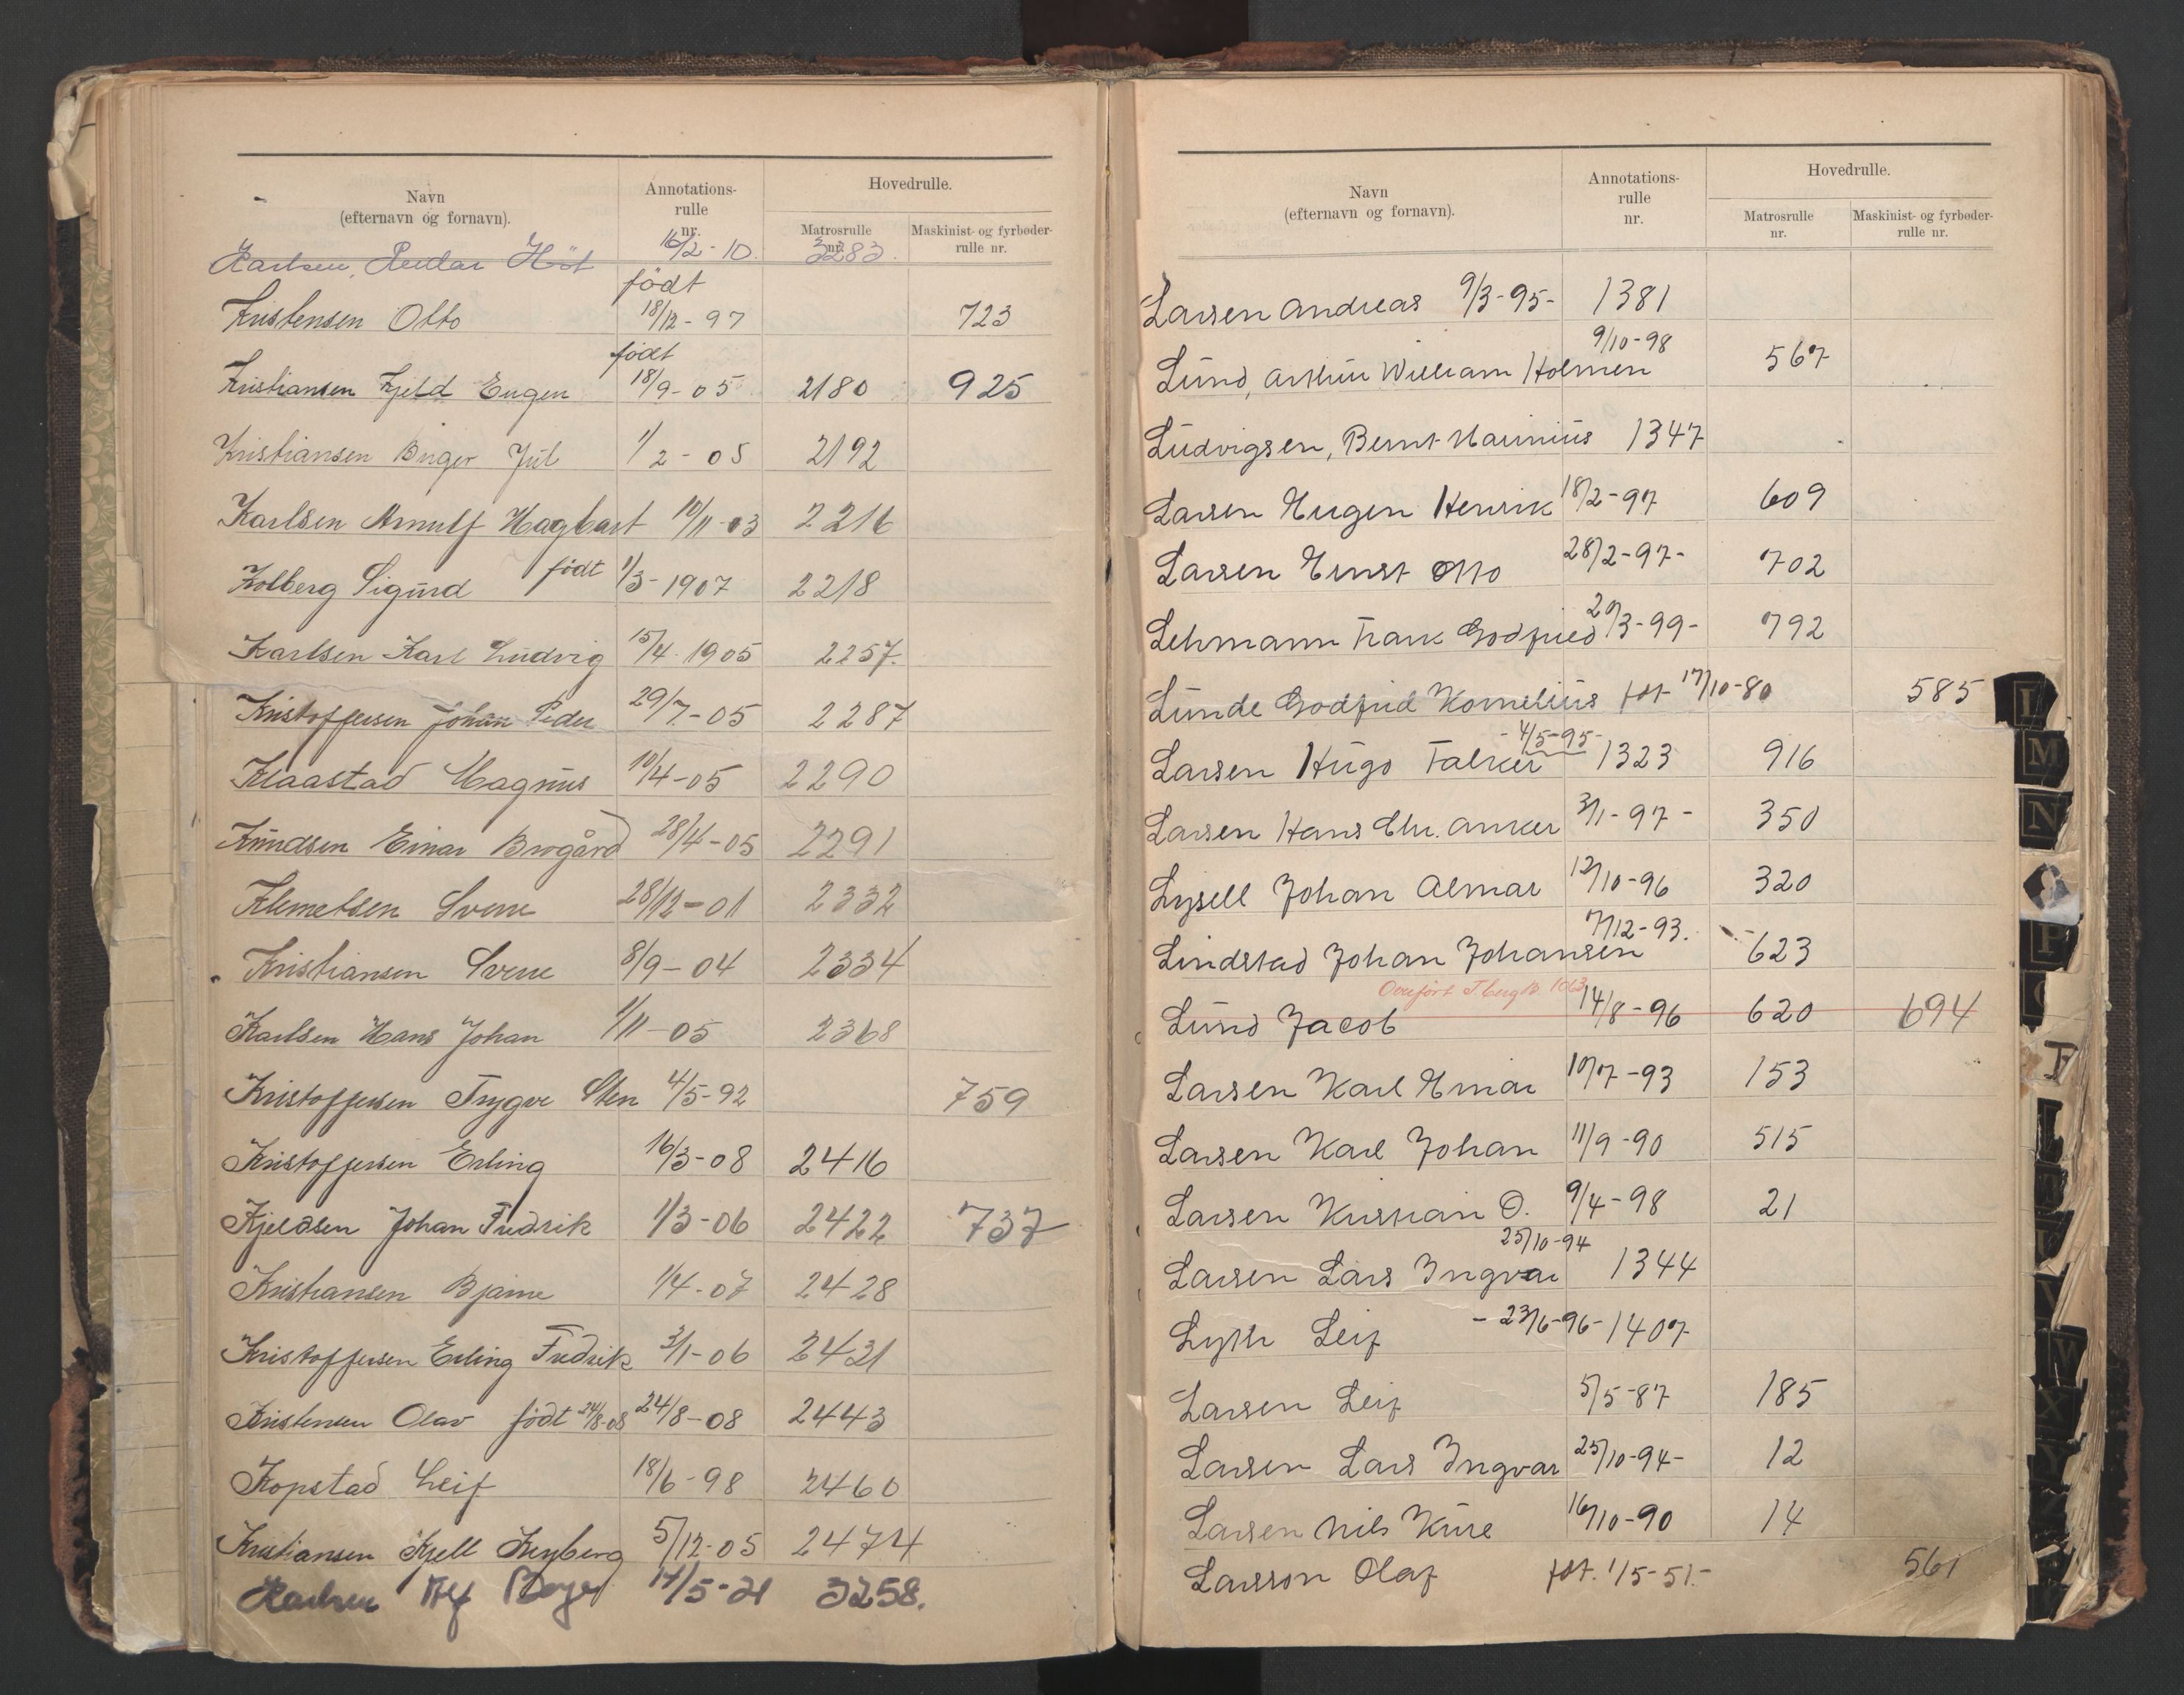 Navn
(efternavn og fornavn).
Annotations-
rulle
nr.
Hovedrulle.
Matrosrulle
nr.
Maskinist- og fyrbøder-
rulle nr.
Karlsen, Reidar 16/2-10. 3283.
Kristensen Otto født 18/12-97 723
Kristiansen Kjeld Eugen født 18/9-05 2180 925
Kristiansen Birger Jul 1/2-05 2192
Karlsen Arnulf Hagbart 10/11-03 2216
Kolberg Sigurd født 1/3-1907 2218
Karlsen Karl Ludvig 15/4-1905 2257.
Kristoffersen Johan Peder 29/7-05 2287
Klaastad Magnus 10/4-05 2290
Knudsen Einar Brogård 28/4-05 2291
Klemetsen Sverre 28/12-01 2332
Kristiansen Sverre 8/9-04 2334
Karlsen Hans Johan 1/11-05 2368
Kristoffersen Trygve Sten 4/5-92 759
Kristoffersen Erling 16/3-08 2416
Kjeldsen Johan Fredrik 1/3-06 2422 737
Kristiansen Bjarne 1/4-07 2428
Kristoffersen Erling Fredrik 3/1-06 2431
Kristensen Olav født 24/8-08 24/8-08 2443
Kopstad Leif 18/6-98 2460
Kristiansen Kjell Keyberg 5/12-05 2474
Karlsen Alf 17/5-21 3258.
Navn
(efternavn og fornavn).
Annotations-
rulle
nr.
Hovedrulle.
Matrosrulle
nr.
Maskinist- og fyrbøder-
rulle nr.
Larsen Andreas 9/3-95- 1381
Lund, Arthur William Holmen 9/10-98 567
Ludvigsen, Bernt Marinius 1347
Larsen Eugen Henrik 18/2-97 609
Larsen Ernst Otto 28/2-97- 702
Lehmann Frank Godfried 20/3-99- 792
Lunde Godfrid Kornelius fdt 17/10-80 585
Larsen Hugo Falker -4/5-95- 1323 916
Larsen Hans Chr. Anker 3/1-97- 350
Lysell Johan Almar 12/10-96 320
Lindstad Johan Johansen 7/12-93. 623
Overført T.berg 1063
Lund Jacob 14/8-96 620 694
Larsen Karl Einar 10/7-93 153
Larsen Karl Johan 11/9-90 515
Larsen Kristian O. 9/4-98 21
Larsen Lars Ingvar 25/10-94 1344
Lyth Leif -23/6-96- 1407
Larsen Leif 5/5-87 185
Larsen Lars Ingvar 25/10-94- 12
Larsen Nils Kure 16/10-90 14
Larsson Olaf fdt. 1/5-51.- 561
L
M
N
P